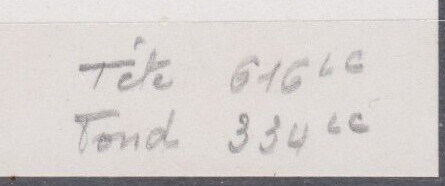 Tête 616 cc
Fond 334 cc